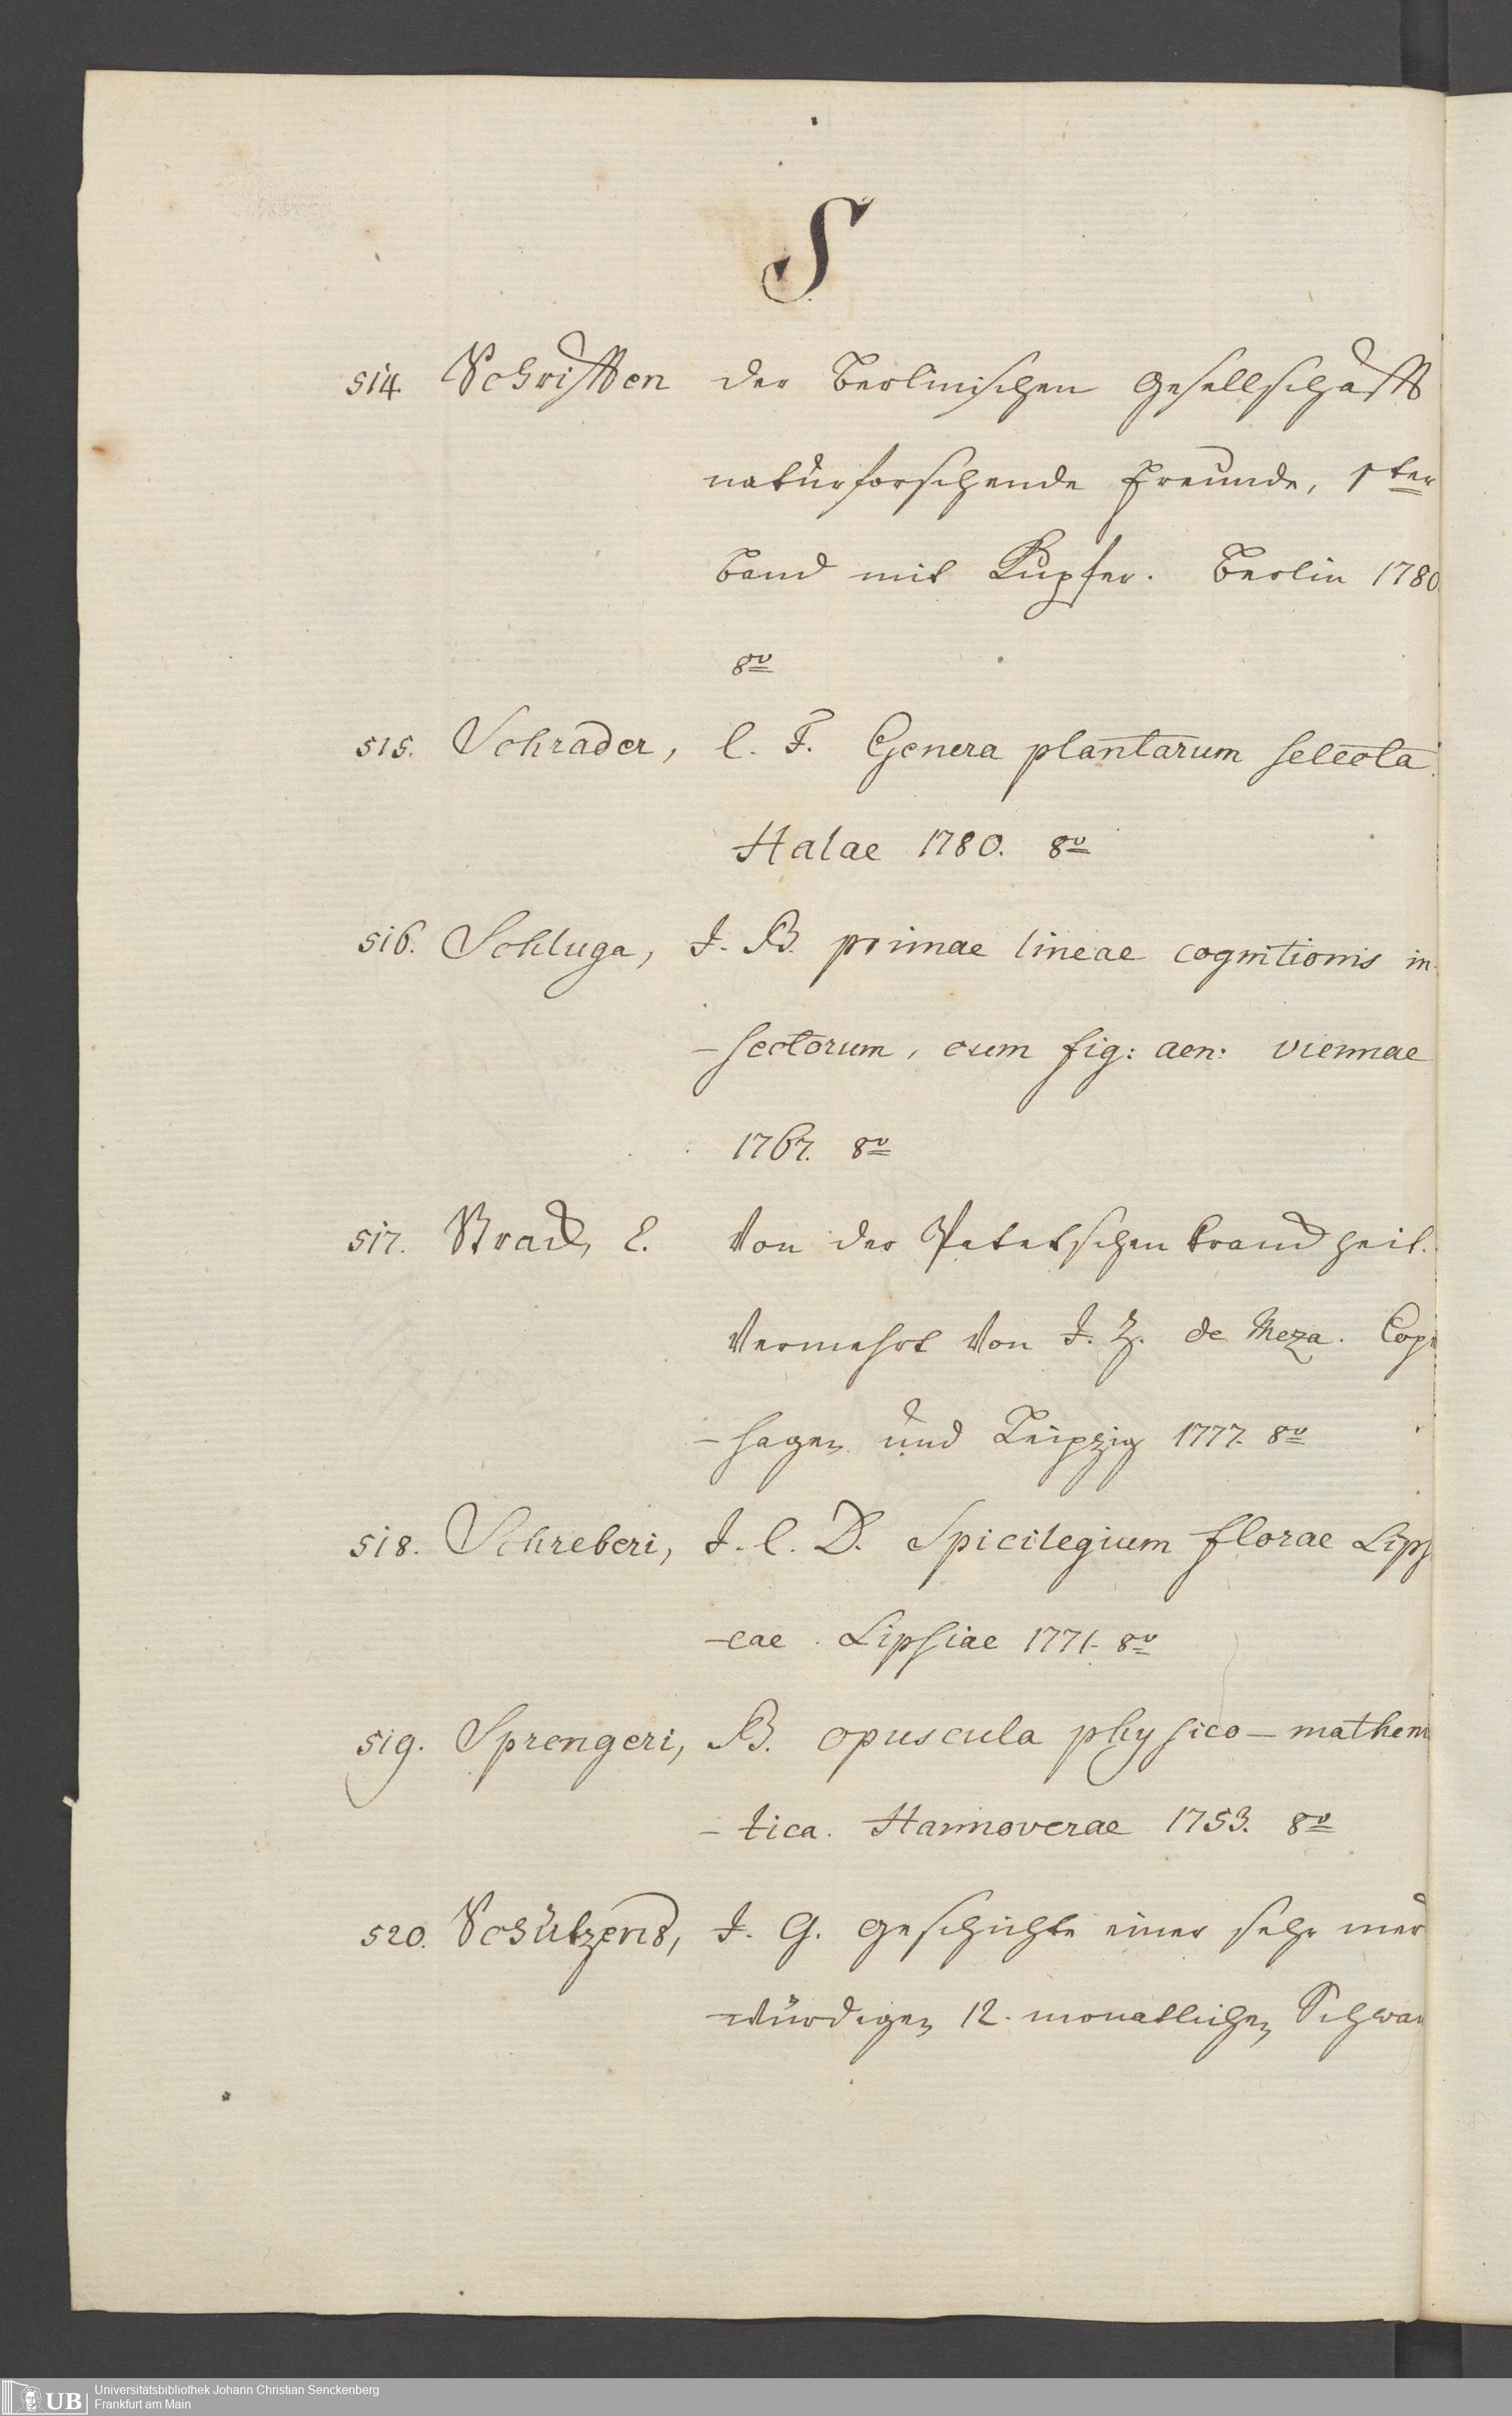 S
514. Schrifften der Berlinischen Gesellschafft
naturforschende Freunde, 1ter
Band mit Kupfer. Berlin 1780.
8vo
515. Schrader, C. F. Genera plantarum selecta.
Halae 1780. 8vo
516. Schluga, J. B. primae lineae cognitionis in-
-sectorum, cum fig: aen: viennae
1767. 8vo
517. Strack, C. Von der Petetschen Kranckheit.
Vermehrt von J. Z. de Meza. Cope
-hagen und Leipzig 1777. 8vo
518. Schreberi, J. C. D. Spicilegium florae Lips
-cae. Lipsiae 1771. 8vo
519. Sprengeri, B. opuscula physico-mathem
-tica. Hannoverae 1753. 8vo
520. Schützens, J. G. Geschichte einer sehr mer
-würdigen 12. monatlichen Schwan
UB Universitätsbibliothek Johann Christian Senckenberg
Frankfurt am Main